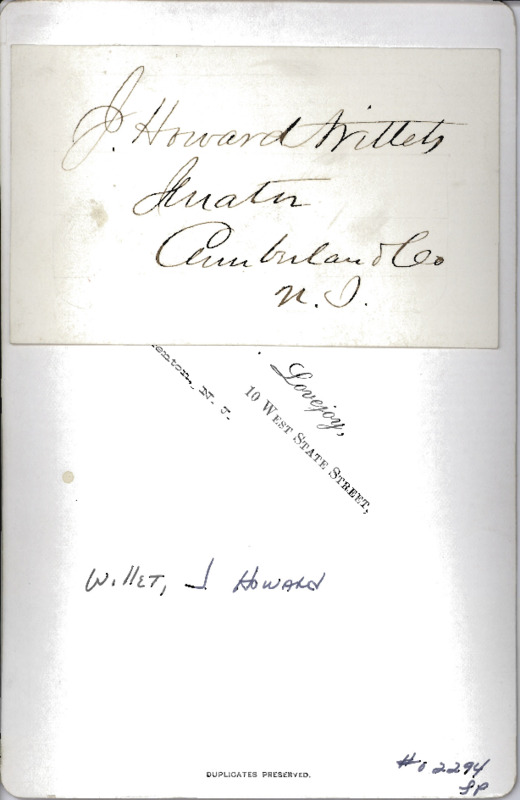 J. Howard Willets
Senator
Cumberland Co
N. J.
enton, N. J.
Lovejoy,
10 WEST STATE STREET,
Willet, J Howard
DUPLICATES PRESERVED.
#02294
SP